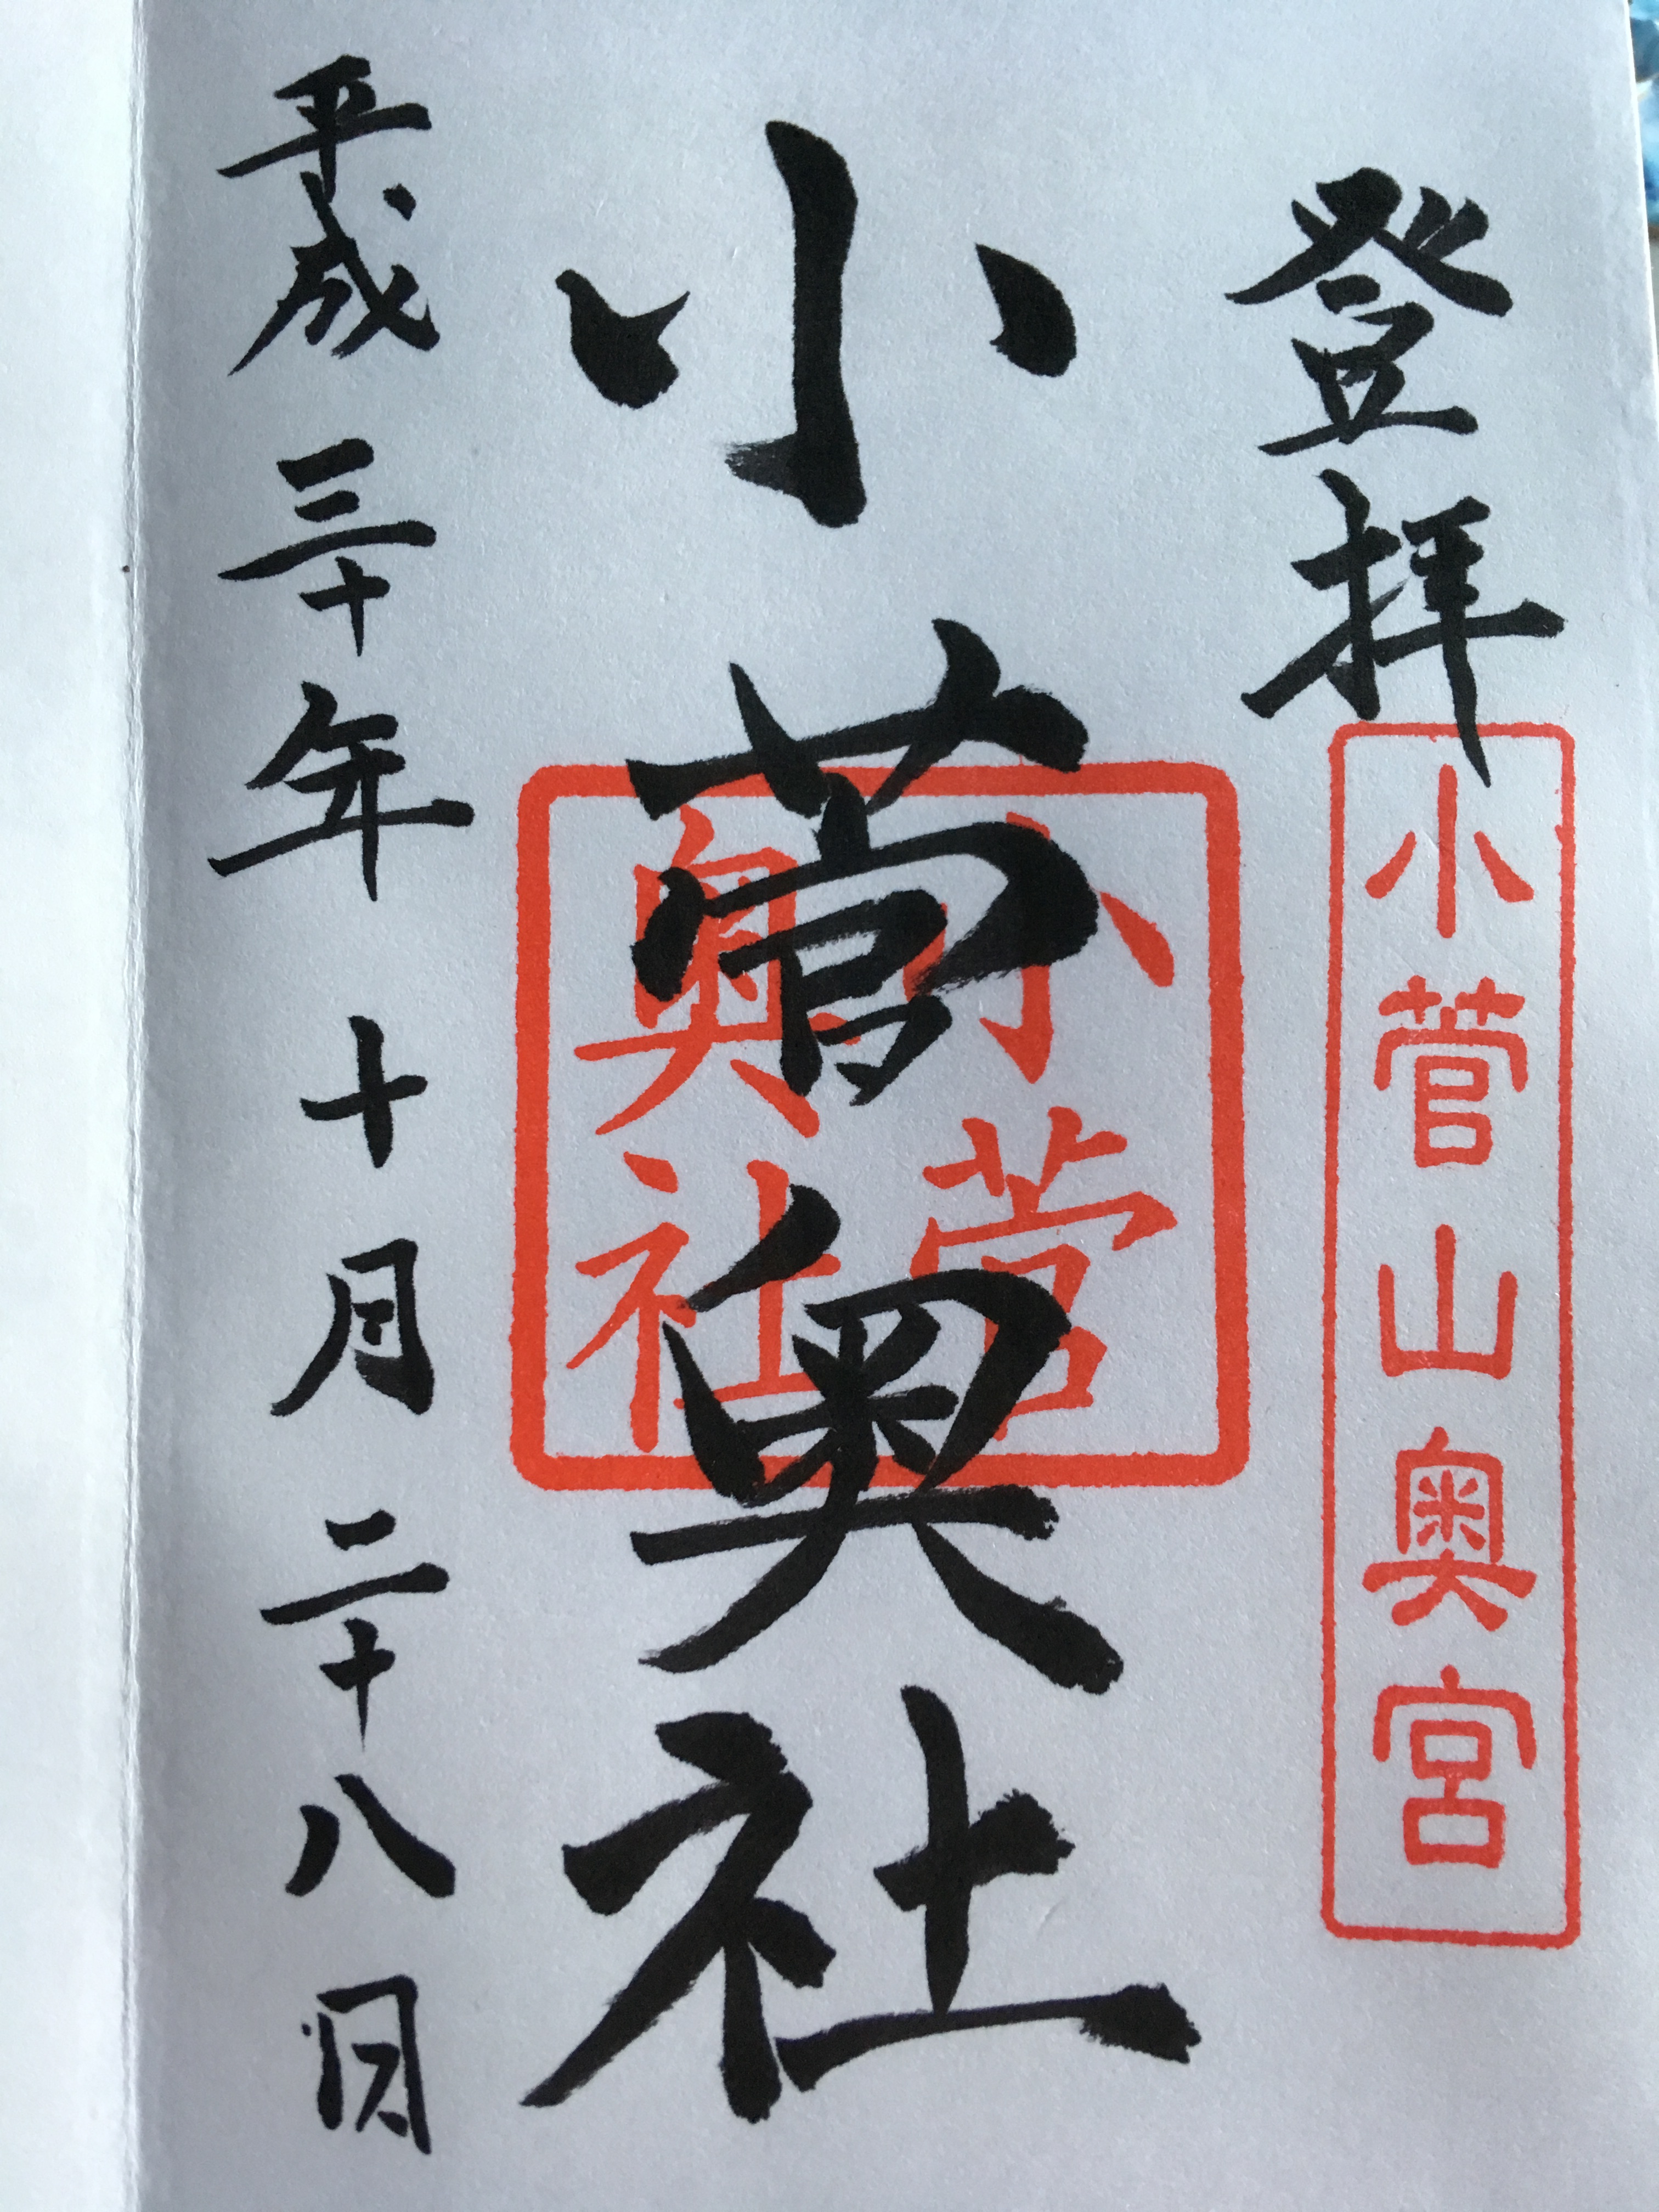 登拝
小菅山奥宮
小菅奥社
小菅
奥社
平成三十年十月二十八日